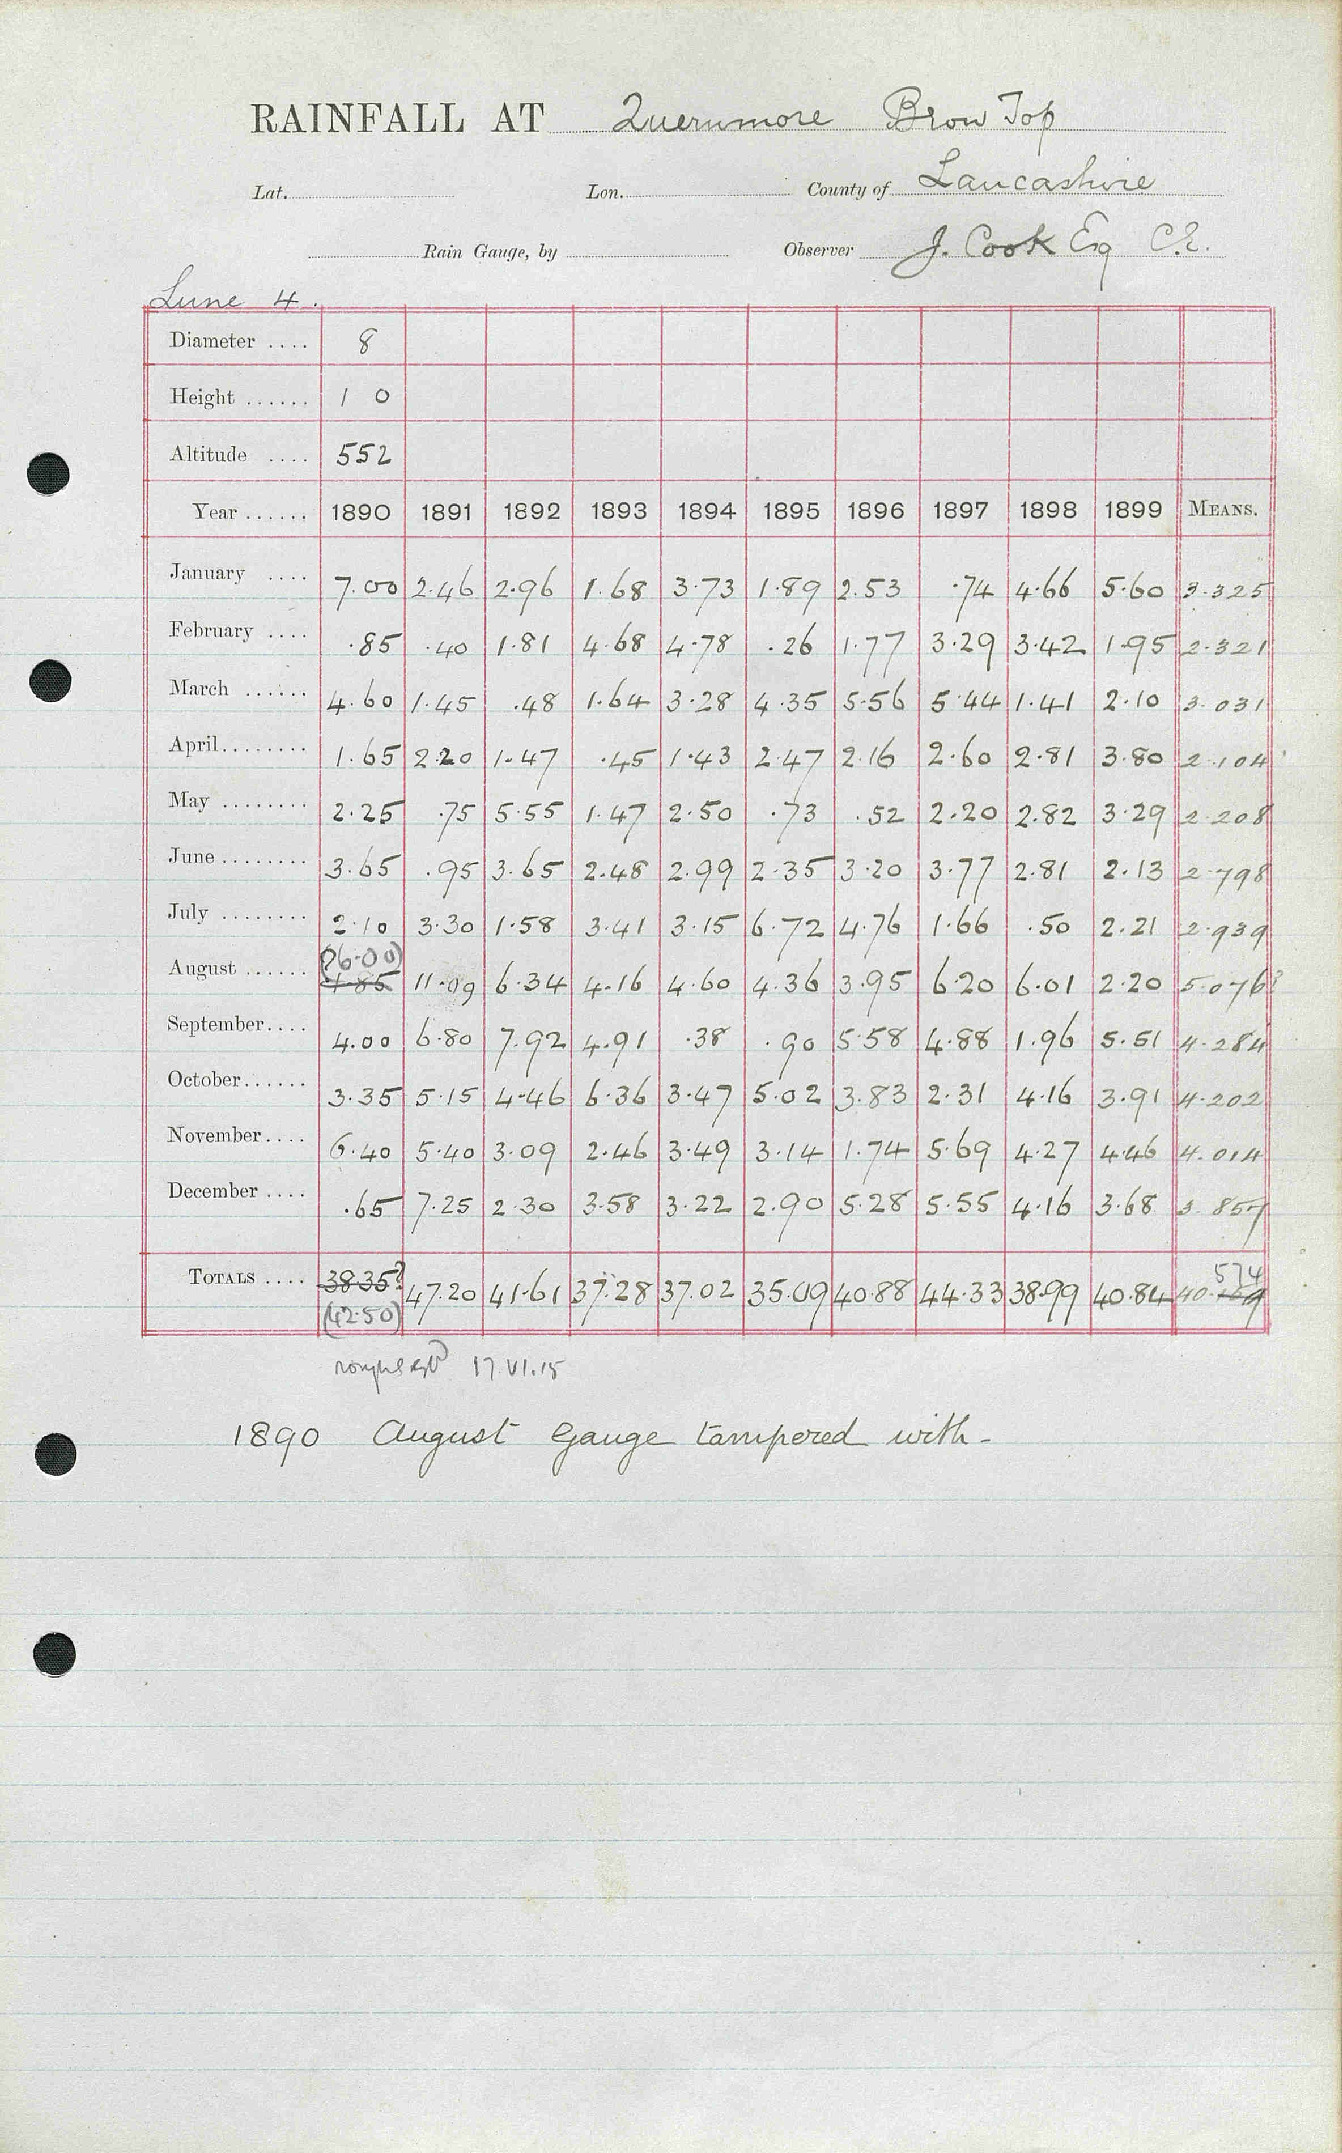 RAINFALL AT Quernmore Brow Top
Lat. Lon. County of Lancashire
Rain Gauge, by Observer J. Cook Esq C.E.
Lune 4.
Diameter .... 8
Height ...... 1 0
Altitude .... 552
Year ...... 1890 1891 1892 1893 1894 1895 1896 1897 1898 1899 MEANS.
January .... 7.00 2.46 2.96 1.68 3.73 1.89 2.53 .74 4.66 5.60 3.325
February .... .85 .40 1.81 4.68 4.78 .26 1.77 3.29 3.42 1.95 2.321
March ...... 4.60 1.45 .48 1.64 3.28 4.35 5.56 5.44 1.41 2.10 3.031
April ........ 1.65 2.20 1.47 .45 1.43 2.47 2.16 2.60 2.81 3.80 2.104
May ........ 2.25 .75 5.55 1.47 2.50 .73 .52 2.20 2.82 3.29 2.208
June ........ 3.65 .95 3.65 2.48 2.99 2.35 3.20 3.77 2.81 2.13 2.798
July ........ 2.10 3.30 1.58 3.41 3.15 6.72 4.76 1.66 .50 2.21 2.939
(?6.00)
August ...... 1.85 11.09 6.34 4.16 4.60 4.36 3.95 6.20 6.01 2.20 5.076?
September .... 4.00 6.80 7.92 4.91 .38 .90 5.58 4.88 1.96 5.51 4.284
October ...... 3.35 5.15 4.46 6.36 3.47 5.02 3.83 2.31 4.16 3.91 4.202
November .... 6.40 5.40 3.09 2.46 3.49 3.14 1.74 5.69 4.27 4.46 4.014
December .... .65 7.25 2.30 3.58 3.22 2.90 5.28 5.55 4.16 3.68 3.857
574
TOTALS .... 38.35? 47.20 41.61 37.28 37.02 35.09 40.88 44.33 38.99 40.84 40.159
(42.50)
17.VI.15
1890 August Gauge tampered with-